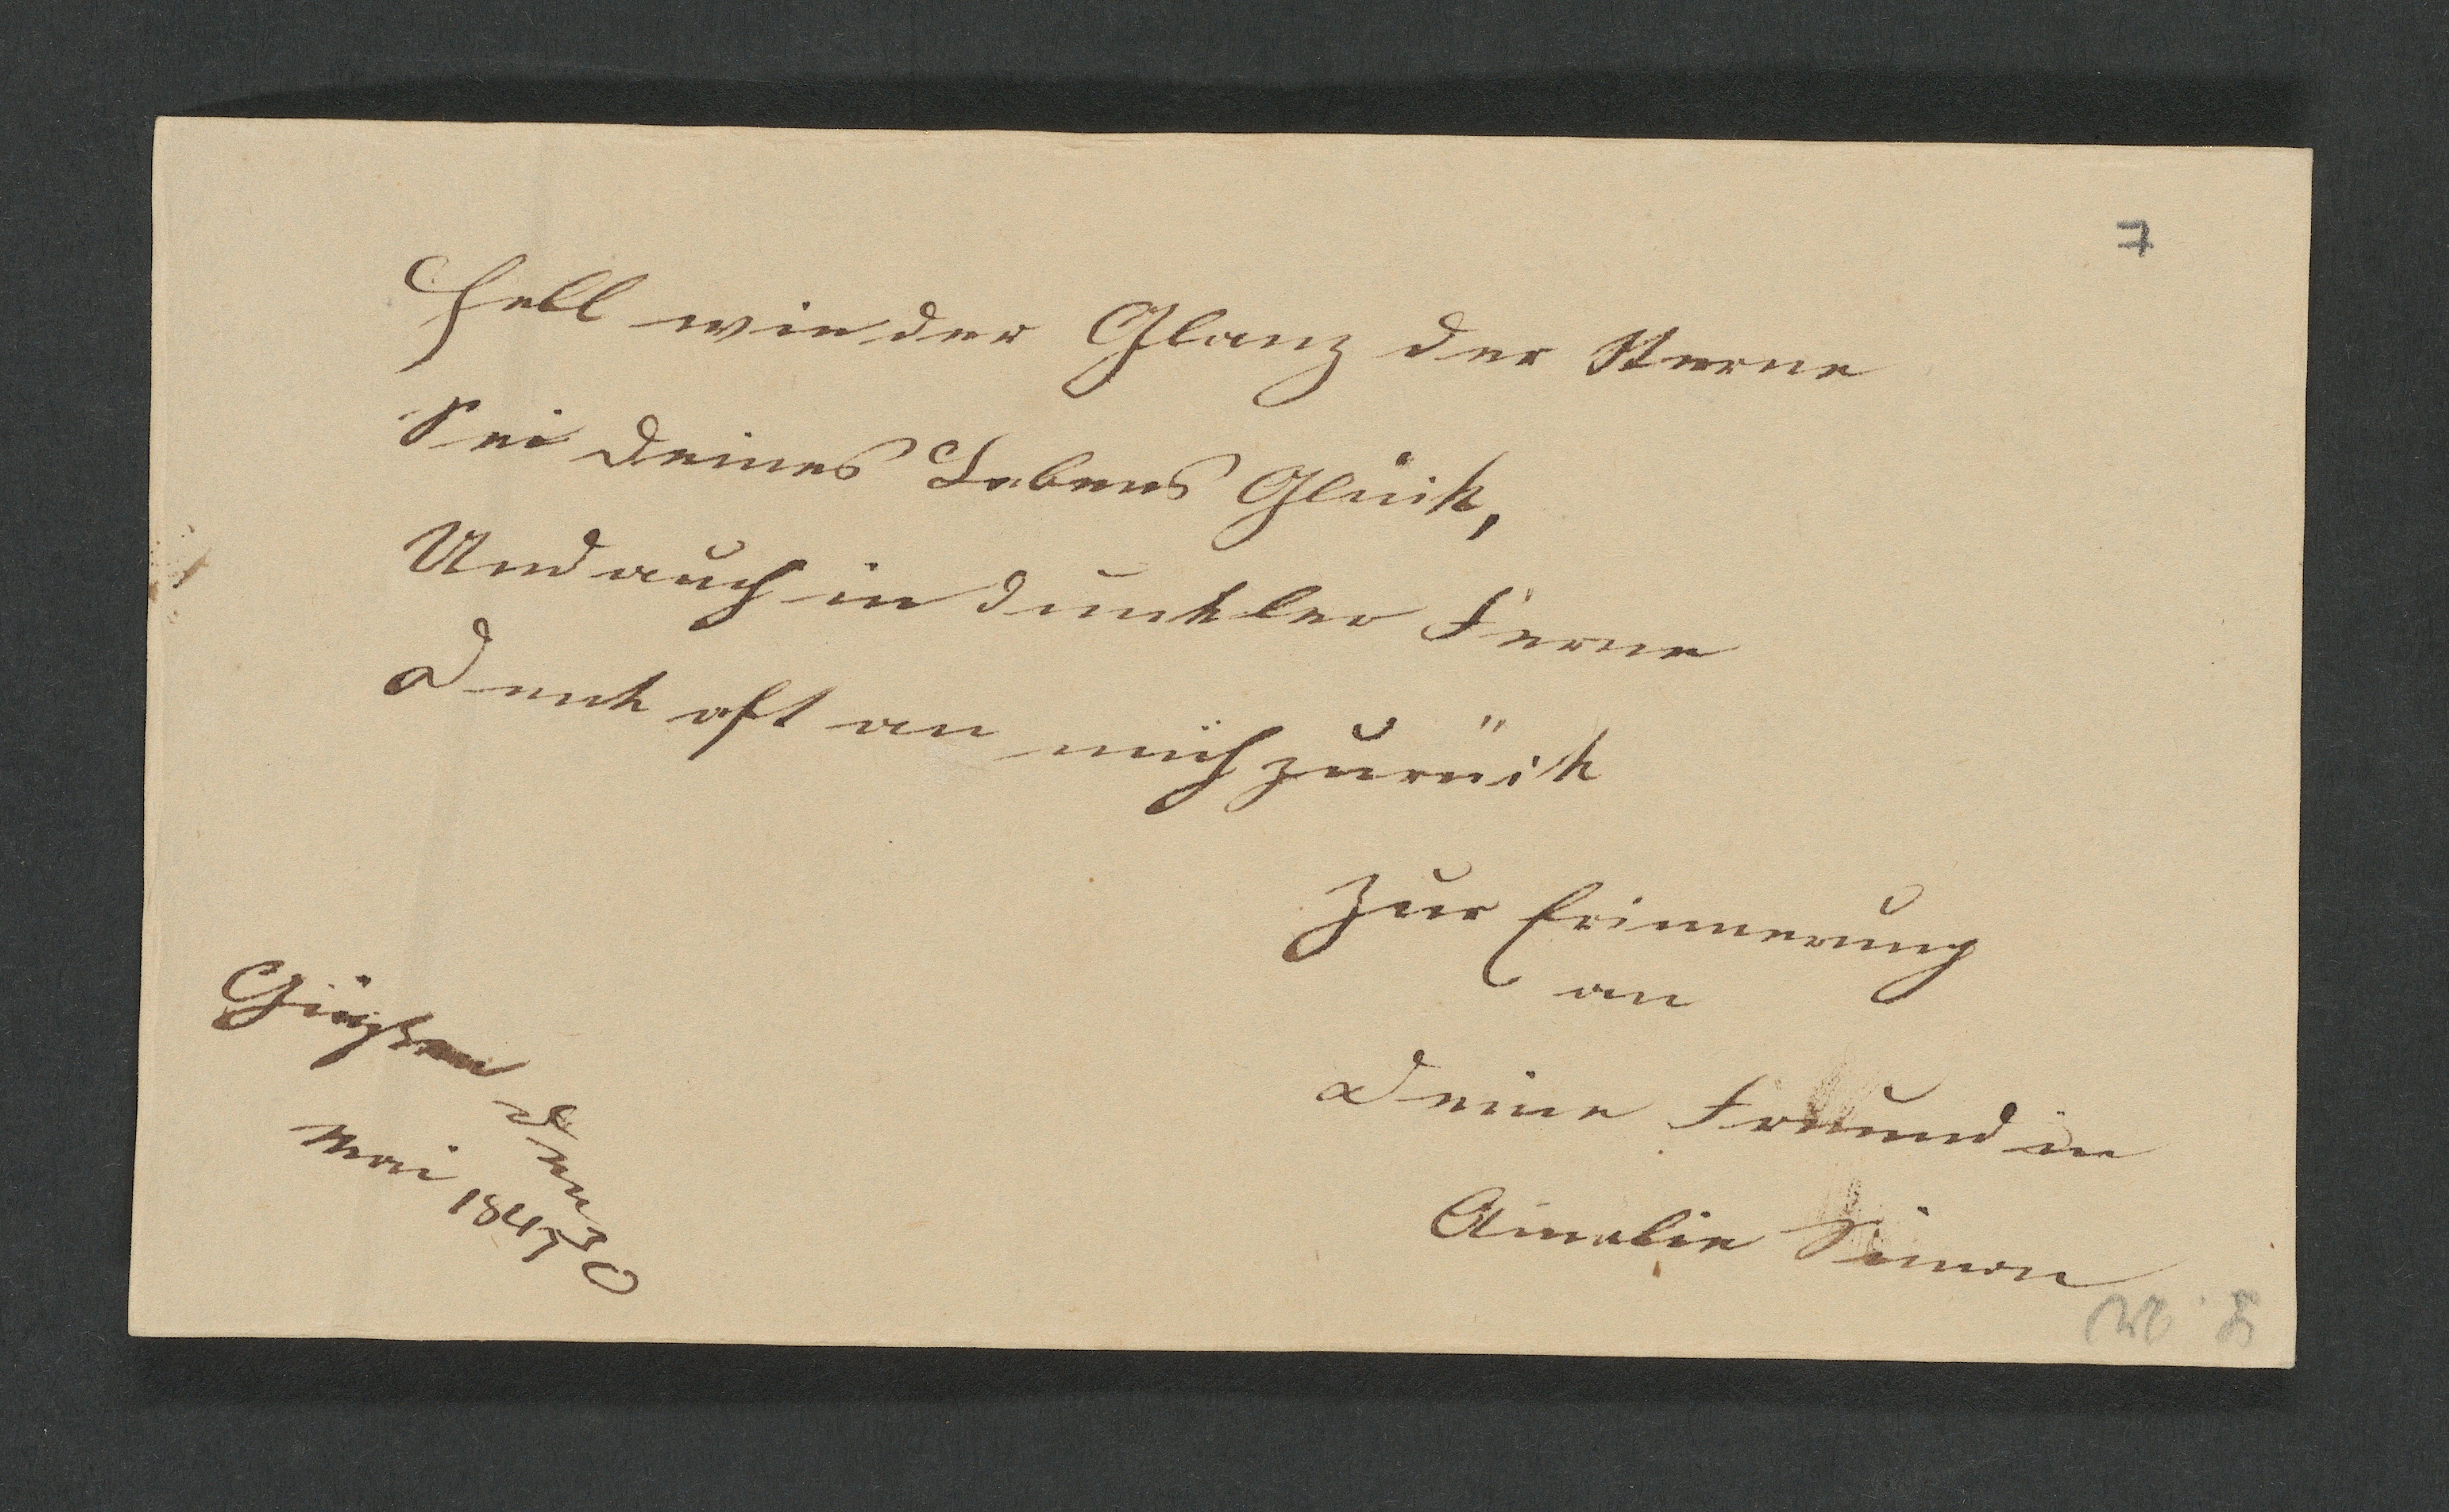 7
Hell wie der Glanz der Sterne
Sei deines Lebens Glück,
Und auch in dunkler Ferne
Denk oft an mich zurück
Zur Erinnerung
an
Deine Freundin
Amalie Simon
den 30
Mai 1847